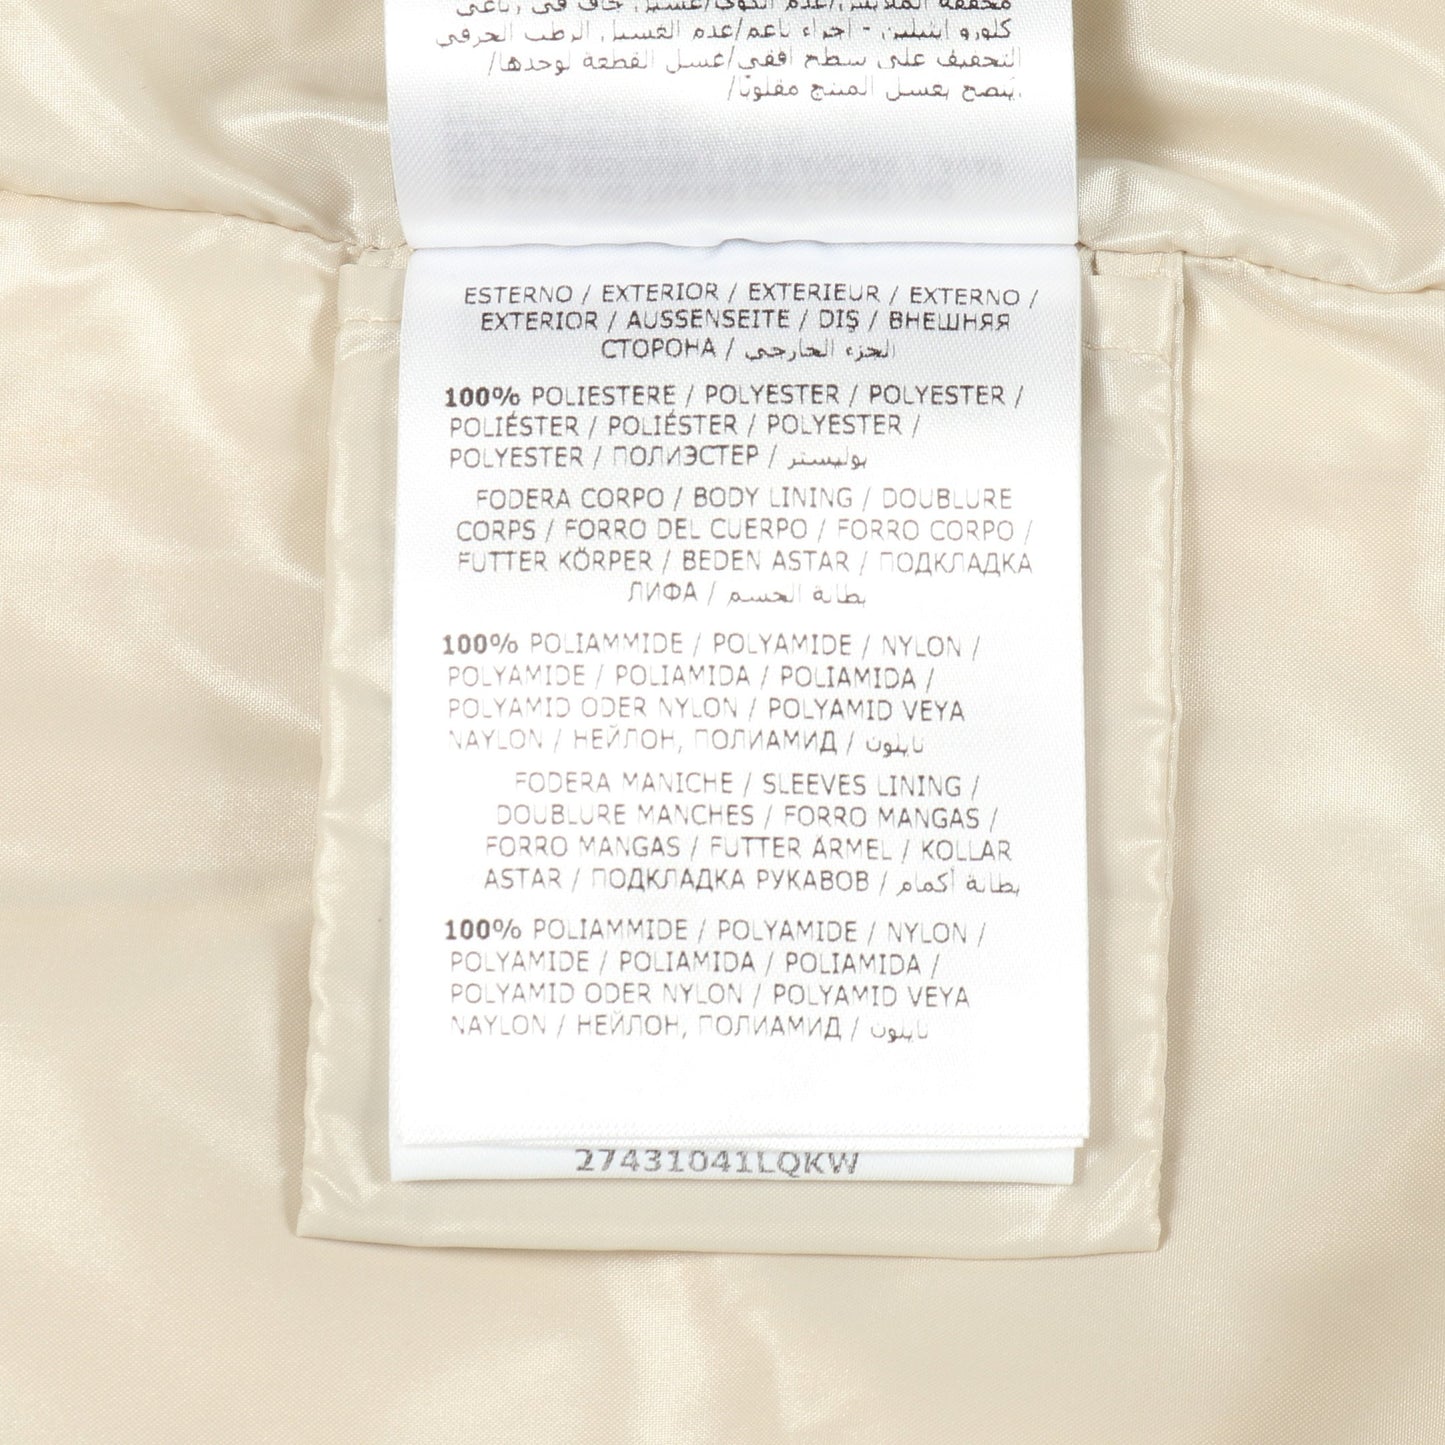 مجففة الملابس/عدم الكوي/غسيل جاف في رباعي
كلورو إيثيلين - اجراء ناعم/عدم الغسيل الرطب الحرفي
التجفيف على سطح افقي/غسل القطعة لوحدها/
ينصح بغسل المنتج مقلوبًا/.
ESTERNO / EXTERIOR / EXTERIEUR / EXTERNO /
EXTERIOR / AUSSENSEITE / DIŞ / ВНЕШНЯЯ
СТОРОНА / الجزء الخارجي
100% POLIESTERE / POLYESTER / POLYESTER /
POLIÉSTER / POLIÉSTER / POLYESTER /
POLYESTER / ПОЛИЭСТЕР / بوليستر
FODERA CORPO / BODY LINING / DOUBLURE
CORPS / FORRO DEL CUERPO / FORRO CORPO /
FUTTER KÖRPER / BEDEN ASTAR / ПОДКЛАДКА
ЛИФА / بطانة الجسم
100% POLIAMMIDE / POLYAMIDE / NYLON /
POLYAMIDE / POLIAMIDA / POLIAMIDA /
POLYAMID ODER NYLON / POLYAMID VEYA
NAYLON / НЕЙЛОН, ПОЛИАМИД / نايلون
FODERA MANICHE / SLEEVES LINING /
DOUBLURE MANCHES / FORRO MANGAS /
FORRO MANGAS / FUTTER ÄRMEL / KOLLAR
ASTAR / ПОДКЛАДКА РУКАВОВ / بطانة أكمام
100% POLIAMMIDE / POLYAMIDE / NYLON /
POLYAMIDE / POLIAMIDA / POLIAMIDA /
POLYAMID ODER NYLON / POLYAMID VEYA
NAYLON / НЕЙЛОН, ПОЛИАМИД / نايلون
27431041LQKW